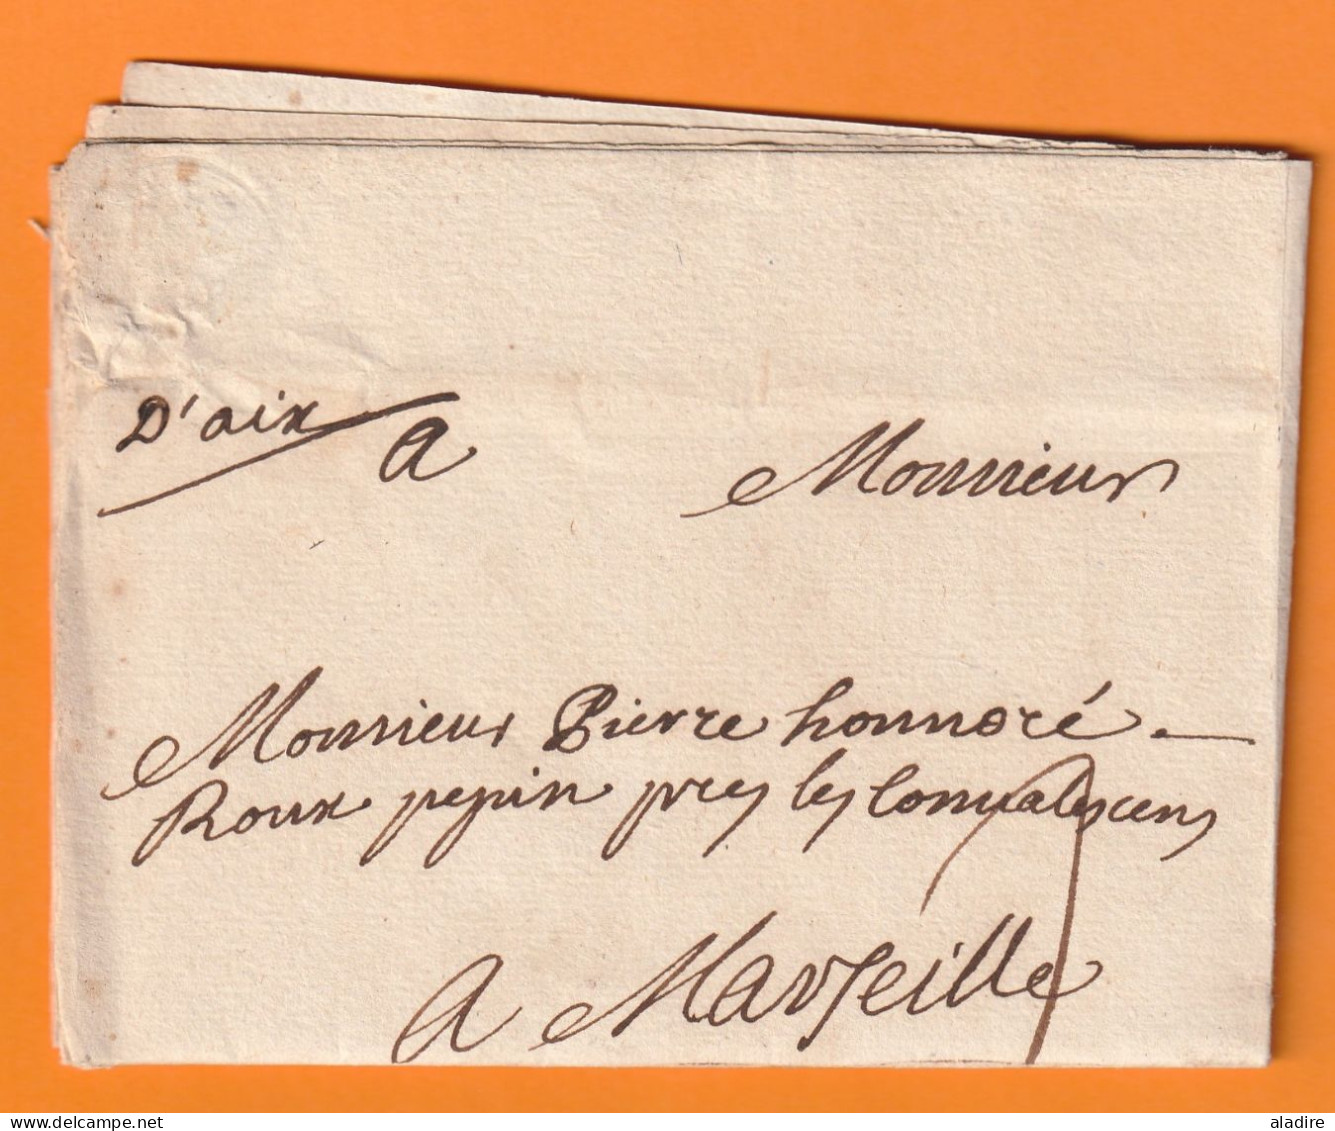 D'aix
A Monsieur
Monsieur Pierre honnoré
Roux pepin pres les Convalescens
A Marseille
delcampe.net
aladire